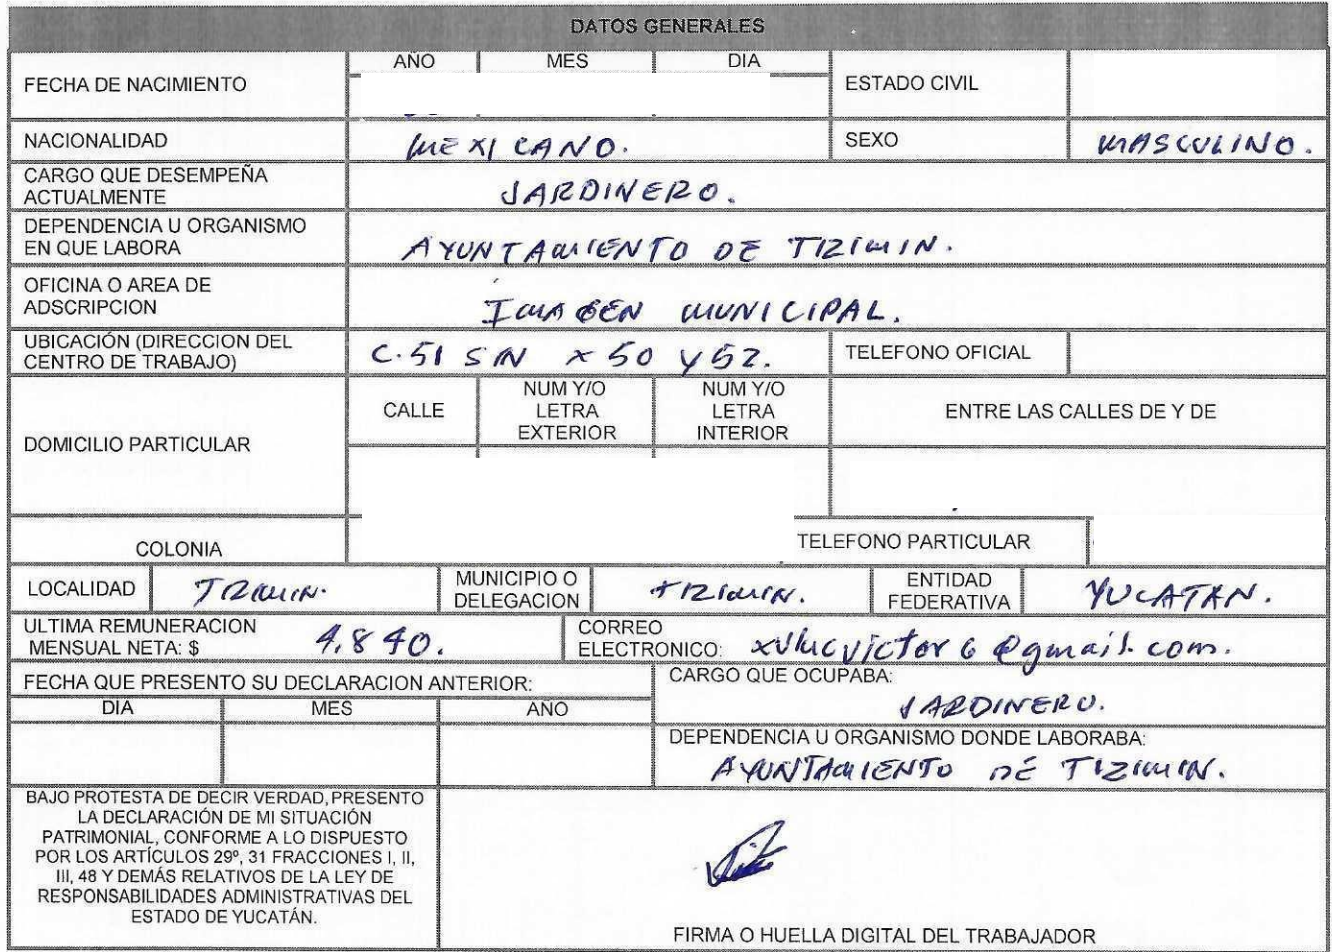 DATOS GENERALES
FECHA DE NACIMIENTO
AÑO MES DIA
ESTADO CIVIL
NACIONALIDAD MEXICANO. SEXO MASCULINO.
CARGO QUE DESEMPEÑA
ACTUALMENTE
JARDINERO.
DEPENDENCIA U ORGANISMO
EN QUE LABORA
AYUNTAMIENTO DE TIZIMIN.
OFICINA O AREA DE
ADSCRIPCION
IMAGEN MUNICIPAL.
UBICACIÓN (DIRECCION DEL
CENTRO DE TRABAJO)
C. 51 S/N x 50 Y 52.
TELEFONO OFICIAL
DOMICILIO PARTICULAR
CALLE
NUM Y/O
LETRA
EXTERIOR
NUM Y/O
LETRA
INTERIOR
ENTRE LAS CALLES DE Y DE
COLONIA
TELEFONO PARTICULAR
LOCALIDAD TIZIMIN.
MUNICIPIO O
DELEGACION
TIZIMIN.
ENTIDAD
FEDERATIVA
YUCATAN.
ULTIMA REMUNERACION
MENSUAL NETA: $ 4,840.
CORREO
ELECTRONICO: @gmail.com.
FECHA QUE PRESENTO SU DECLARACION ANTERIOR:
DIA MES AÑO
CARGO QUE OCUPABA:
JARDINERO.
DEPENDENCIA U ORGANISMO DONDE LABORABA:
AYUNTAMIENTO DE TIZIMIN.
BAJO PROTESTA DE DECIR VERDAD, PRESENTO
LA DECLARACIÓN DE MI SITUACIÓN
PATRIMONIAL, CONFORME A LO DISPUESTO
POR LOS ARTÍCULOS 29º, 31 FRACCIONES I, II,
III, 48 Y DEMÁS RELATIVOS DE LA LEY DE
RESPONSABILIDADES ADMINISTRATIVAS DEL
ESTADO DE YUCATÁN.
FIRMA O HUELLA DIGITAL DEL TRABAJADOR